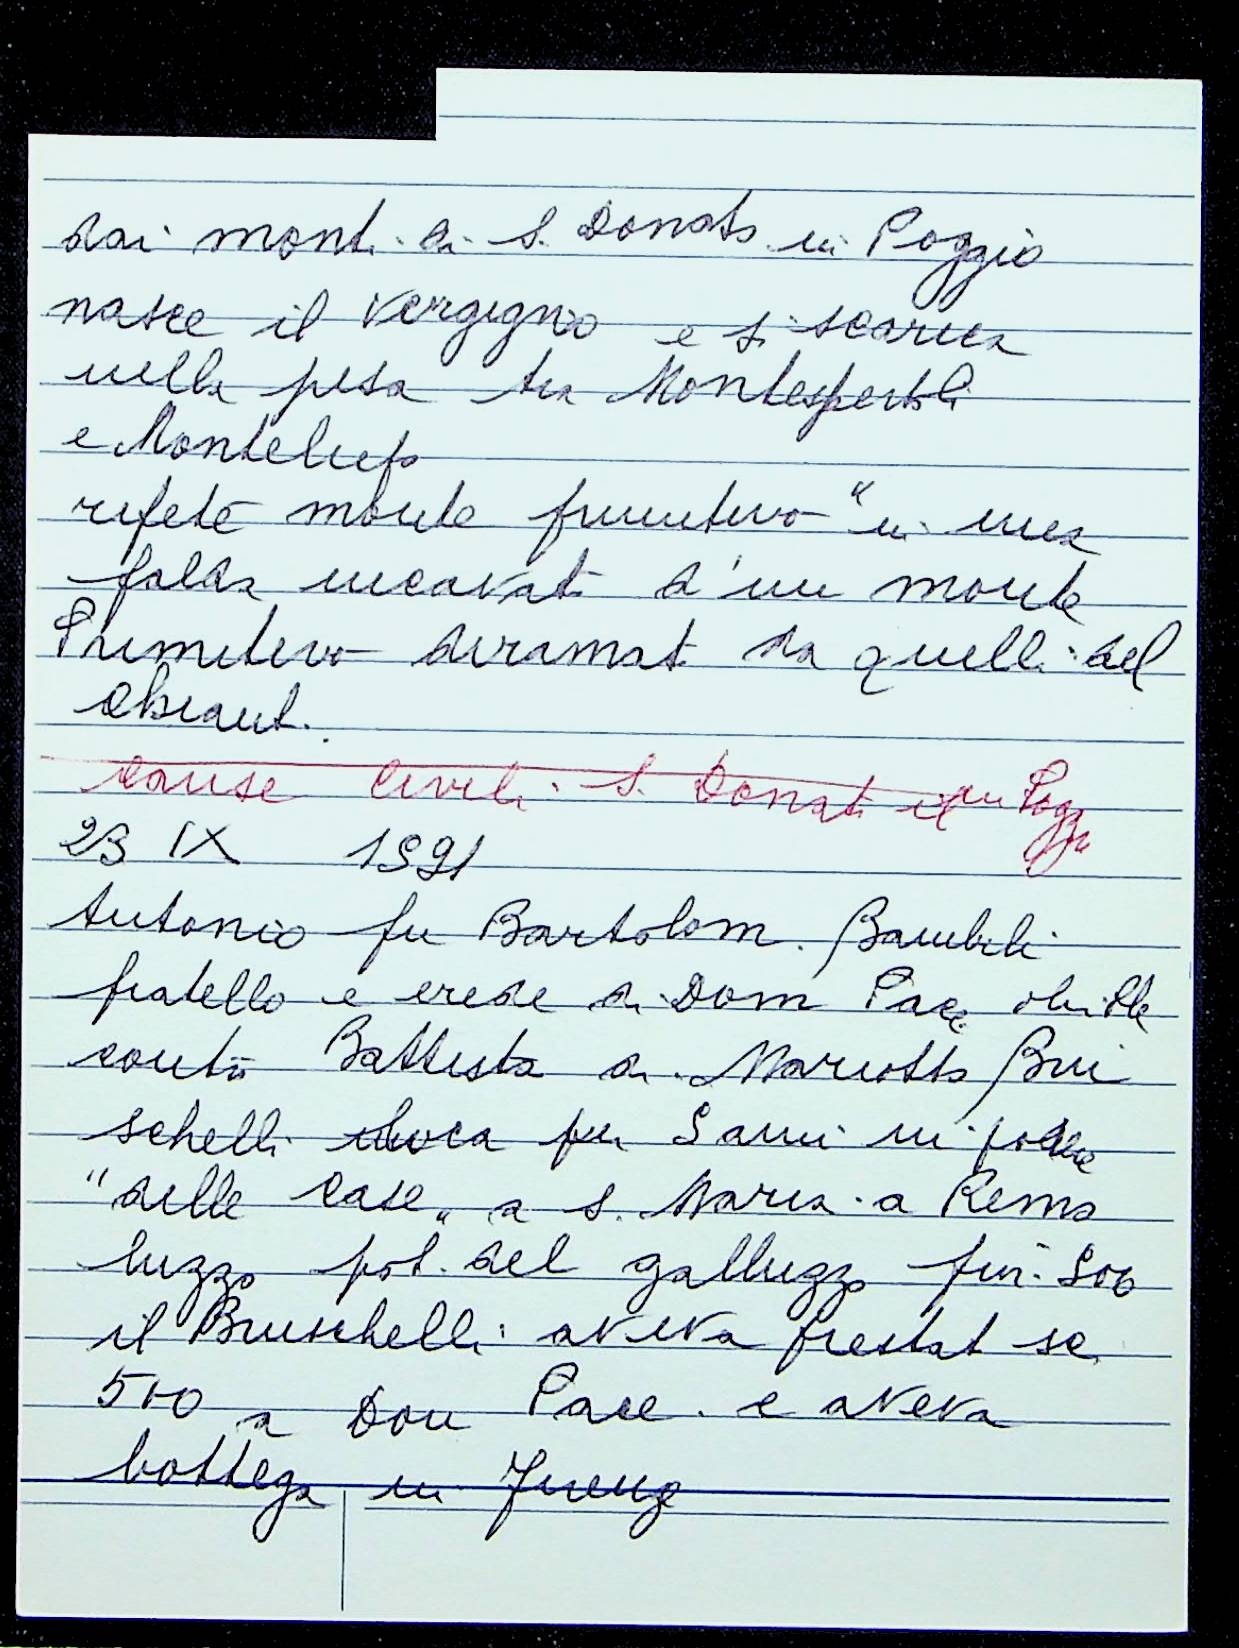 dai monti di S. Donato in Poggio
nasce il Vergigno e si scarica
nella pesa tra Montespertoli
e Montelupo
ripete monte primitivo "in una
falda incavat. d'un monte
Primitivo diramat. da quelli del
Chianti.
cause civili S. Donat. in Pogg
23 IX 1591
Antonio fu Bartolom.
fratello e erede di Dom Pace
contō Battista di Mariotto Bru
schelli per 5 anni in podere
"delle case" a S. Maria a Remo
luzzo pot. del galluzzo fior. 500
il Bruschelli aveva prestat sc.
500 a Don Pace e aveva
bottega in Firenze